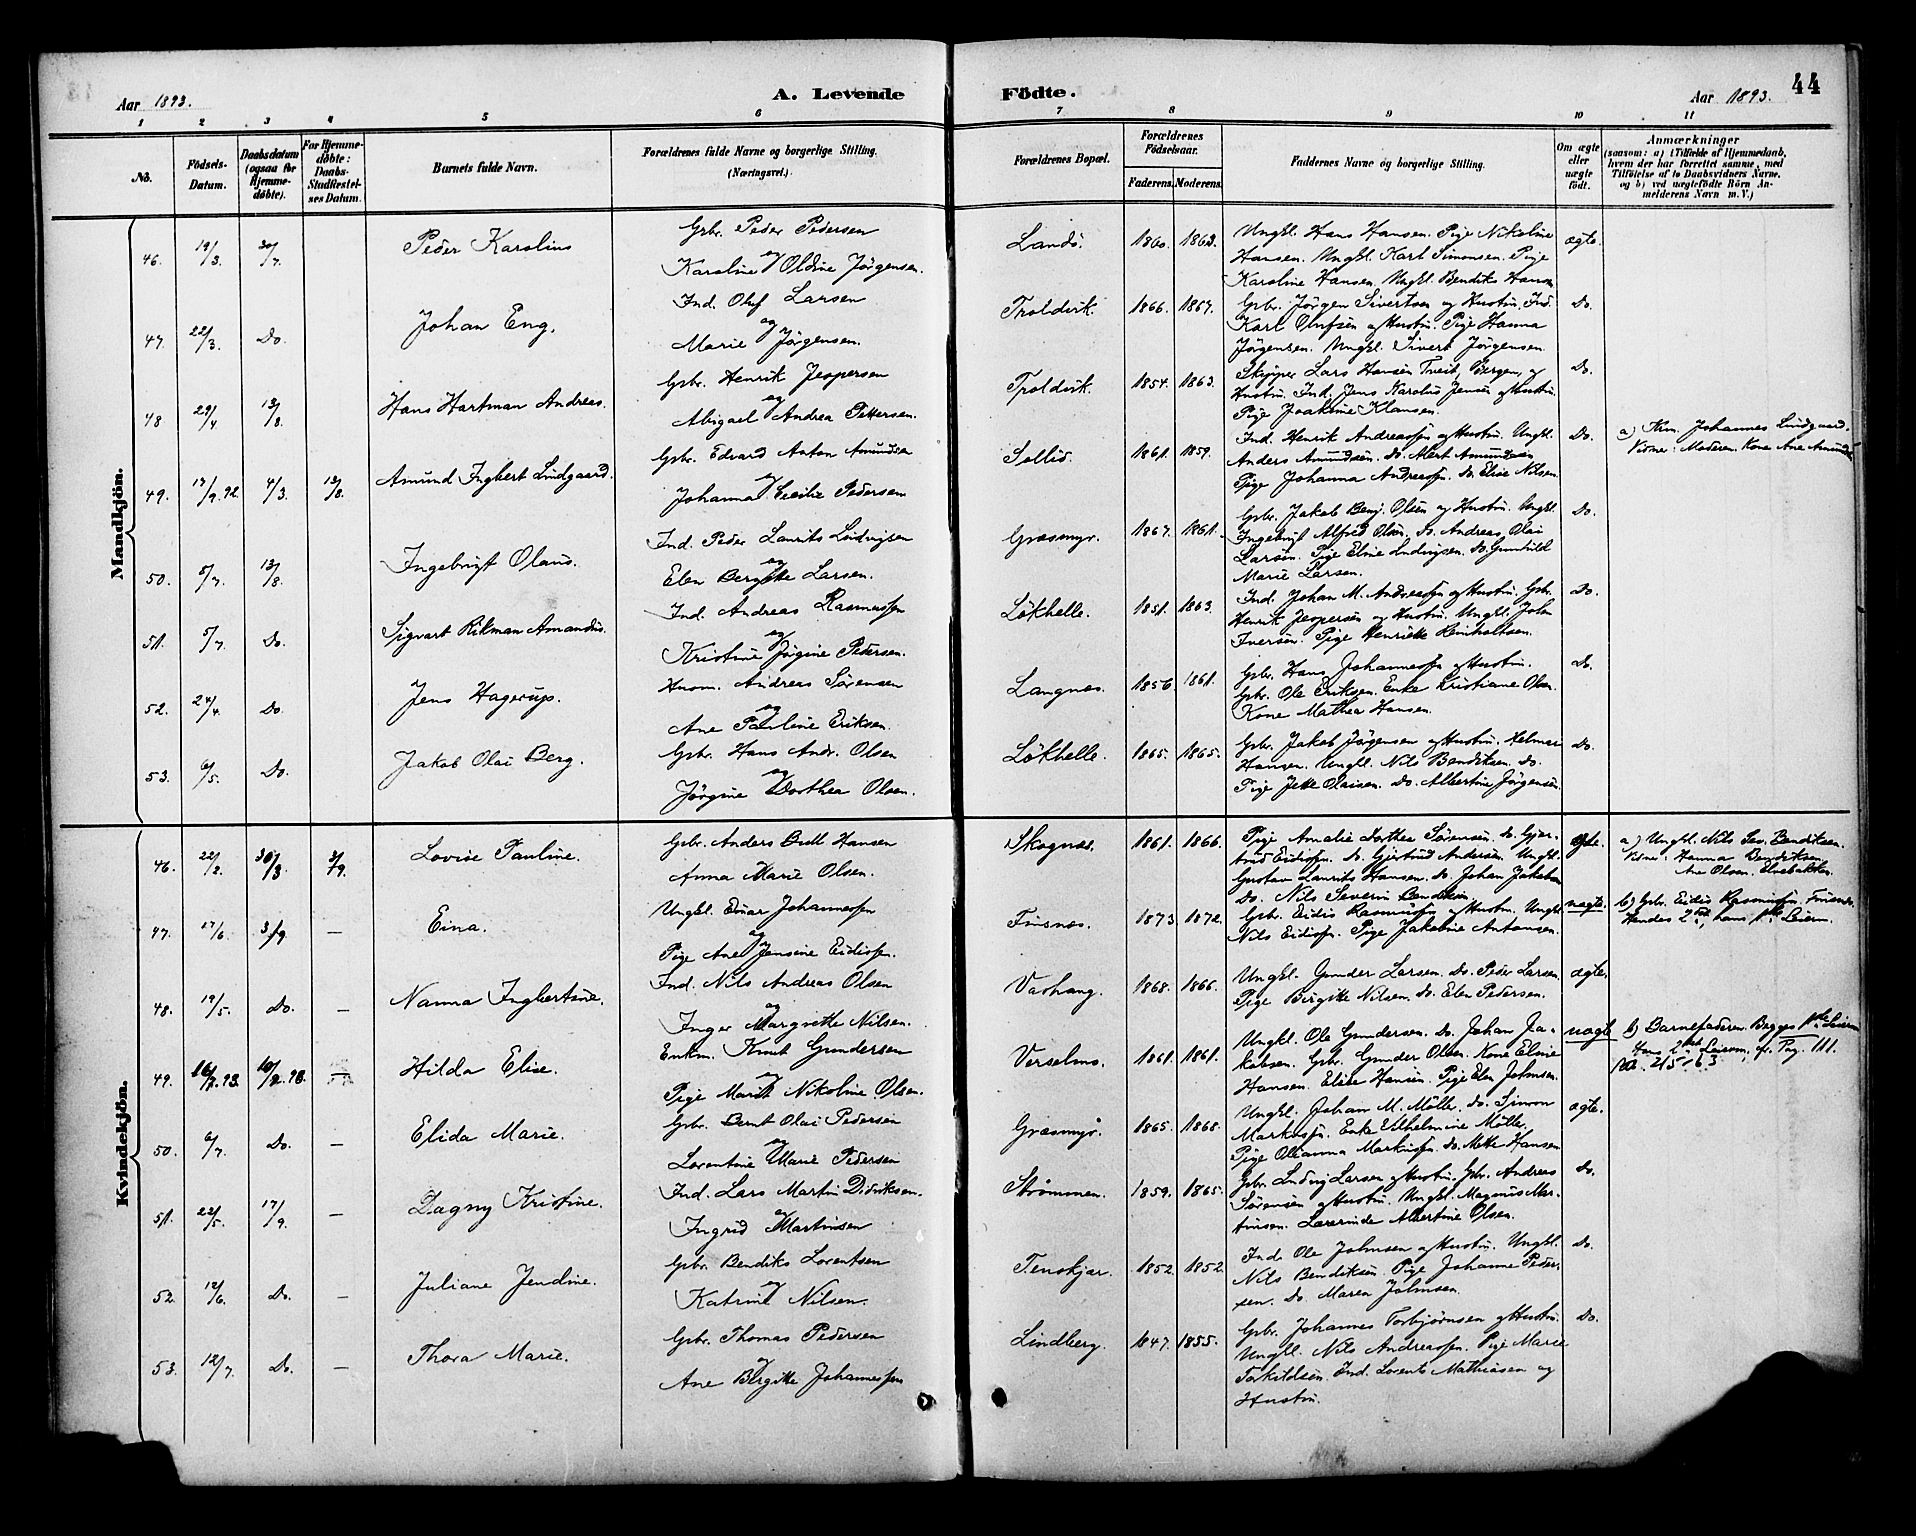 Aar 1893.
A. Levende Födte.
Aar 1893.
44
1 2 3 4 5 6 7 8 9 10 11
No.
Födsels-Datum.
Daabsdatum (ogsaa for Hjemmedøbte).
For Hjemmedøbte: Daabs-Stadfæstelses Datum.
Barnets fulde Navn.
Forældrenes fulde Navne og borgerlige Stilling.
(Næringsvei.)
Forældrenes Bopæl.
Forældrenes Födselsaar.
Faderens. Moderens.
Faddernes Navne og borgerlige Stilling.
Om ægte eller uægte födt.
Anmærkninger
(saasom: a) i Tilfælde af Hjemmedaab,
hvem der har forrettet samme, med
Tilföielse af to Daabsvidners Navne,
og b) ved uægtefödte Börn An-
melderens Navn m.V.)
Mandkjön.
46. 19/3. 30/7. Peder Karolius
Gbr. Peder Pedersen
og
Karoline Oldine Jørgensen.
Landø. 1860. 1863.
Ungkl. Hans Hansen. Pige Nikoline
Hansen. Ungkl. Karl Simonsen. Pige
Karoline Hansen. Ungkl. Bendik Hansen
ægte.
47. 22/3. Do. Johan Eng.
Ind. Oluf Larsen
og
Marie Jørgensen.
Troldvik. 1866. 1867.
Gbr. Jørgen Sivertsen og Hustru. Ind.
Karl Olufsen og Hustru. Pige Hanna
Jørgensen. Ungkl. Sivert Jørgensen.
Do.
48 29/4 13/8. Hans Hartman Andreas.
Gbr. Henrik Jespersen
og
Abigael Andrea Pettersen.
Troldvik. 1854. 1863.
Skipper Lars Hansen Tveit, Bergen, og
Hustru. Ind. Jens Karolius Jensen og Hustru.
Pige Joakime Klausen.
Do.
49. 17/9.92. 4/3. 13/8. Amund Ingbert Lindgaard.
Gbr. Edvard Anton Amundsen
og
Johanna Cecilie Pedersen
Sollid. 1861. 1859.
Ind. Henrik Andreassen og Hustru. Ungkl.
Anders Amundsen. Do. Alert Amundsen
Pige Johanna Andreassen. Do. Elise Nilsen.
Do.
a) Krm. Johannes Lindgaard.
Vidner: Moderen. Kone Ane Amundsen
50. 5/7. 13/8. Ingebrigt Olaus.
Ind. Peder Laurits Ludvigsen
og
Elen Bergitte Larsen.
Græsmyr. 1867. 1861.
Gbr. Jakob Benj. Olsen og Hustru. Ungkl.
Ingebrigt Alfred Olsen. Do. Andreas Olai
Larsen. Pige Eline Ludvigsen. Do. Gunhild
Marie Larsen.
Do.
51. 5/7. Do. Sigvart Rikman Amandus.
Ind. Andreas Rasmussen
og
Kristine Jørgine Pedersen.
Løkhelle. 1851. 1863.
Ind. Johan M. Andreassen og Hustru. Gbr.
Henrik Jespersen og Hustru. Ungkl. John
Iversen. Pige Henrikke Reinholtsen.
Do.
52. 24/4. Do. Jens Hagerup.
Husm. Andreas Sørensen
og
Ane Pauline Eriksen.
Langnes. 1856. 1861.
Gbr. Hans Johannessen og Hustru.
Gbr. Ole Eriksen. Enke Kristiane Olsen.
Kone Mathea Hansen.
Do.
53. 6/5. Do. Jakob Olai Berg.
Gbr. Hans Andr. Olsen
og
Jørgine Dorthea Olsen.
Løkhelle. 1865. 1865.
Gbr. Jakob Jørgensen og Hustru. Helmer
Hansen. Ungkl. Nils Bendiksen. Do.
Pige Jette Olaisen. Do. Albertine Jørgensen.
Do.
Kvindekjön.
46. 22/2. 30/3 3/9. Lovise Pauline.
Gbr. Anders Bull Hansen
Anna Marie Olsen.
Skognes. 1861. 1866.
Pige Amalie Dorthea Sørensen. Do. Gjær-
trud Eidissen. Do. Gjertrud Andersen. Ungkl.
Gustav Laurits Hansen. Do. Johan Jakobsen
Do. Nils Severin Bendiksen.
ægte.
a) Ungkl. Nils Sev. Bendiksen.
Vidner: Hanna Bendiksen.
Ane Olsen, Elvebakken.
47. 17/6. 3/9. — Eina.
Ungkl. Einar Johannessen
og
Pige Ane Jensine Eidissen.
Finsnes. 1873. 1872.
Gbr. Eidis Rasmussen og Hustru. Ungkl.
Nils Eidissen. Pige Jakobine Antonsen.
uægte.
b) Gbr. Eidis Rasmussen, Finsnes.
Hendes 2det, hans 1ste Leierm.
48. 19/5. Do. — Nanna Ingbertine.
Ind. Nils Andreas Olsen
og
Inger Margrethe Nilsen.
Vashaug. 1868. 1866.
Ungkl. Gunder Larsen. Do. Peder Larsen.
Pige Birgitte Nilsen. Do. Elen Pedersen.
ægte.
49. Hilda Elise.
Enkm. Knut Gundersen
og
Pige Marit Nikoline Olsen.
Verselmo. 1861. 1861.
Ungkl. Ole Gundersen. Do. Johan Ja-
kobsen. Gbr. Gunder Olsen. Kone Eline
Hansen. Elise Hansen. Pige Elen Johnsen.
uægte
b) Barnefaderen. Begges 1ste Leierm
50. 6/7. Do. — Elida Marie.
Gbr. Bernt Olai Pedersen
og
Lorentine Marie Pedersen
Græsmyr. 1865. 1868.
Ungkl. Johan M. Møller. Do. Simon
Markussen. Enke Vilhelmine Møller.
Pige Olianna Markussen. Do. Mette Hansen
ægte.
51. 22/5. 17/9. — Dagny Kristine.
Ind. Lars Martin Didriksen.
og
Ingrid Martinsen
Strømmen. 1859. 1865.
Gbr. Ludvig Larsen og Hustru. Gbr. Andreas
Sørensen og Hustru. Ungkl. Magnus Mar-
tinsen. Lærerinde Albertine Olsen.
Do.
52. 12/6. Do. — Juliane Jendine.
Gbr. Bendiks Lorentsen
og
Katrine Nilsen.
Tenskjær. 1852. 1852.
Ind. Ole Johnsen og Hustru. Ungkl.
Nils Bendiksen. Pige Johanne Peder-
sen. Do. Maren Johnsen.
Do.
53. 12/7. Do. — Thora Marie.
Gbr. Thomas Pedersen
og
Ane Bergitte Johannessen
Lindberg. 1847. 1855.
Gbr. Johannes Torbjørnsen og Hustru.
Ungkl. Nils Andreassen. Pige Marie
Torkildsen. Ind. Lorents Mathiasen og
Hustru.
Do.